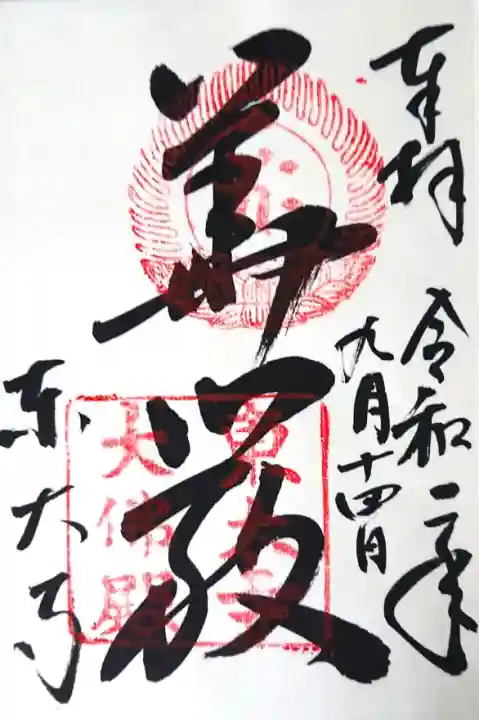 奉拝
令和二年
九月十四日
華厳
東大寺
東大寺
大佛殿